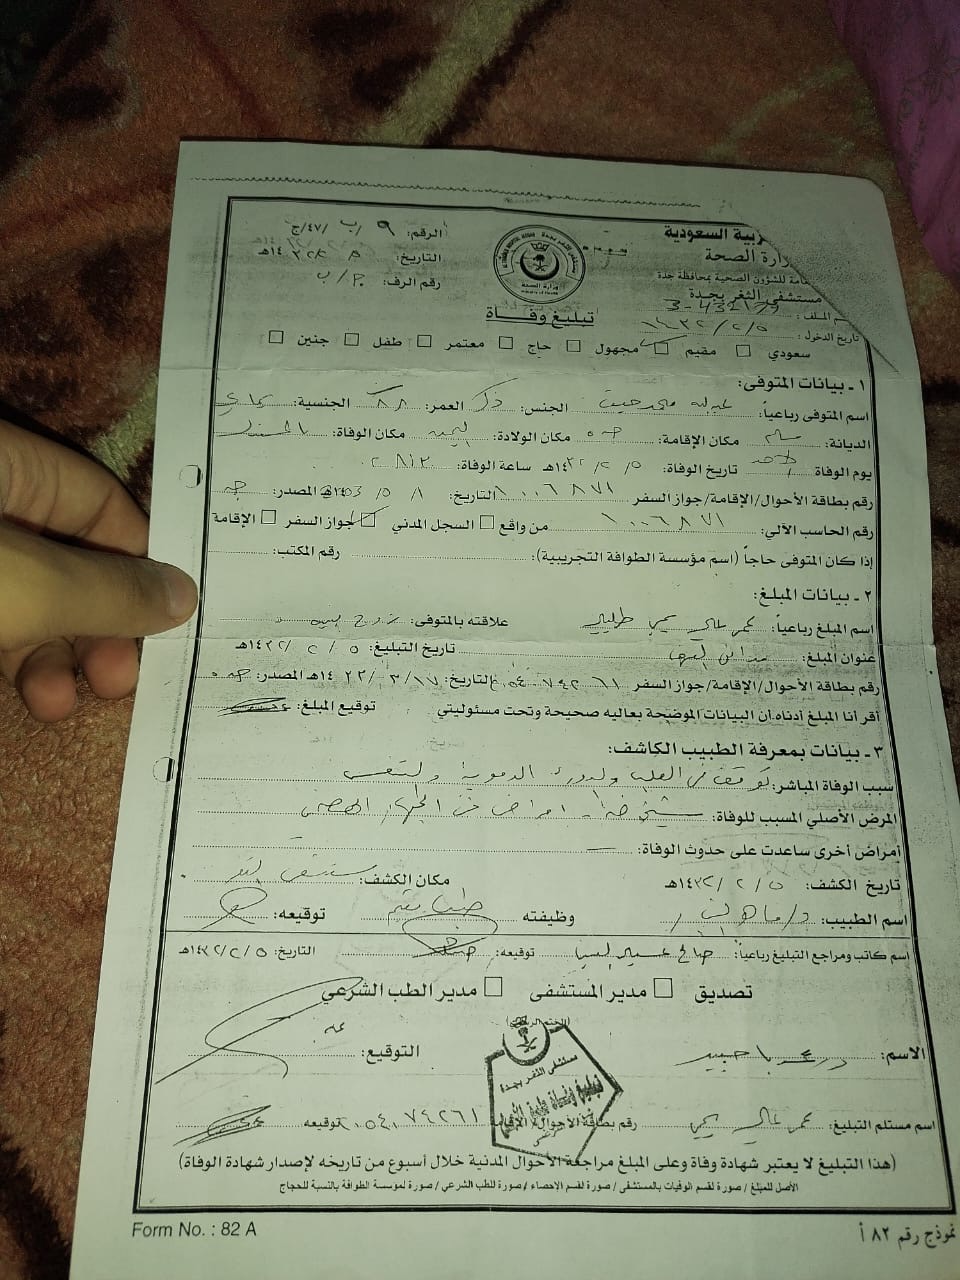 ربية السعودية
رة الصحة
امة للشؤون الصحية بمحافظة جدة
مستشفى الثغر بجدة
الملف:
تاريخ الدخول: ١٤٣٢/٢/٥
الرقم: ٩ /ب /٤٧/ج
التاريخ: ١٤٣٢هـ
رقم الرف: ب
وزارة الصحة
تبليغ وفـــاة
سعودي مقيم مجهول حاج معتمر طفل جنين
١ ـ بيانات المتوفى:
اسم المتوفى رباعياً: عبدله محمد الجنس: ذكر العمر: ٨٨ الجنسية: يماني
الديانة: مسلم مكان الإقامة: جده مكان الولادة: اليمن مكان الوفاة: المنزل
يوم الوفاة الأحد تاريخ الوفاة: ١٤٣٢/٢/٥هـ ساعة الوفاة:
رقم بطاقة الأحوال/الإقامة/جواز السفر ١٠٠٦٨٧١ التاريخ: ١/٥/1403هـ المصدر: جده
رقم الحاسب الآلي: ١٠٠٦٨٧١ من واقع السجل المدني جواز السفر الإقامة
إذا كان المتوفى حاجاً (اسم مؤسسة الطوافة التجريبية): رقم المكتب:
٢ ـ بيانات المبلغ:
اسم المبلغ رباعيا: عمر علي يحيى علاقته بالمتوفى: زوج
عنوان المبلغ: تاريخ التبليغ: ١٤٣٢/٢/٥هـ
رقم بطاقة الأحوال/الإقامة/جواز السفر ٢٠٥٤٠٧٤٢٦١ التاريخ: ١٤٢٢/٣/١٧هـ المصدر: جده
أقر أنا المبلغ أدناه أن البيانات الموضحة بعاليه صحيحة وتحت مسئوليتي توقيع المبلغ:
٣ ـ بيانات بمعرفة الطبيب الكاشف:
سبب الوفاة المباشر: توقف في القلب والدورة الدموية والتنفس
المرض الأصلي المسبب للوفاة: شيخوخة ـ امراض في الجهاز الهضمي
أمراض أخرى ساعدت على حدوث الوفاة: ـ
تاريخ الكشف: ١٤٣٢/٢/٥هـ مكان الكشف: مستشفى الثغر
اسم الطبيب: د/ماهر وظيفته طبيب مقيم توقيعه:
اسم كاتب ومراجع التبليغ رباعياً: صالح توقيعه: التاريخ: ١٤٣٢/٢/٥هـ
تصديق مدير المستشفى مدير الطب الشرعي
الاسم: التوقيع:
مستشفى الثغر بجدة
اسم مستلم التبليغ: عمر علي يحيى رقم بطاقة الأحوال/الإقامة ٢٠٥٤٠٧٤٢٦١ توقيعه
(هذا التبليغ لا يعتبر شهادة وفاة وعلى المبلغ مراجعة الأحوال المدنية خلال أسبوع من تاريخه لإصدار شهادة الوفاة)
الأصل للمبلغ / صورة لقسم الوفيات بالمستشفى / صورة لقسم الإحصاء / صورة للطب الشرعي / صورة لمؤسسة الطوافة بالنسبة للحجاج
نموذج رقم ٨٢ أ
Form No. : 82 A